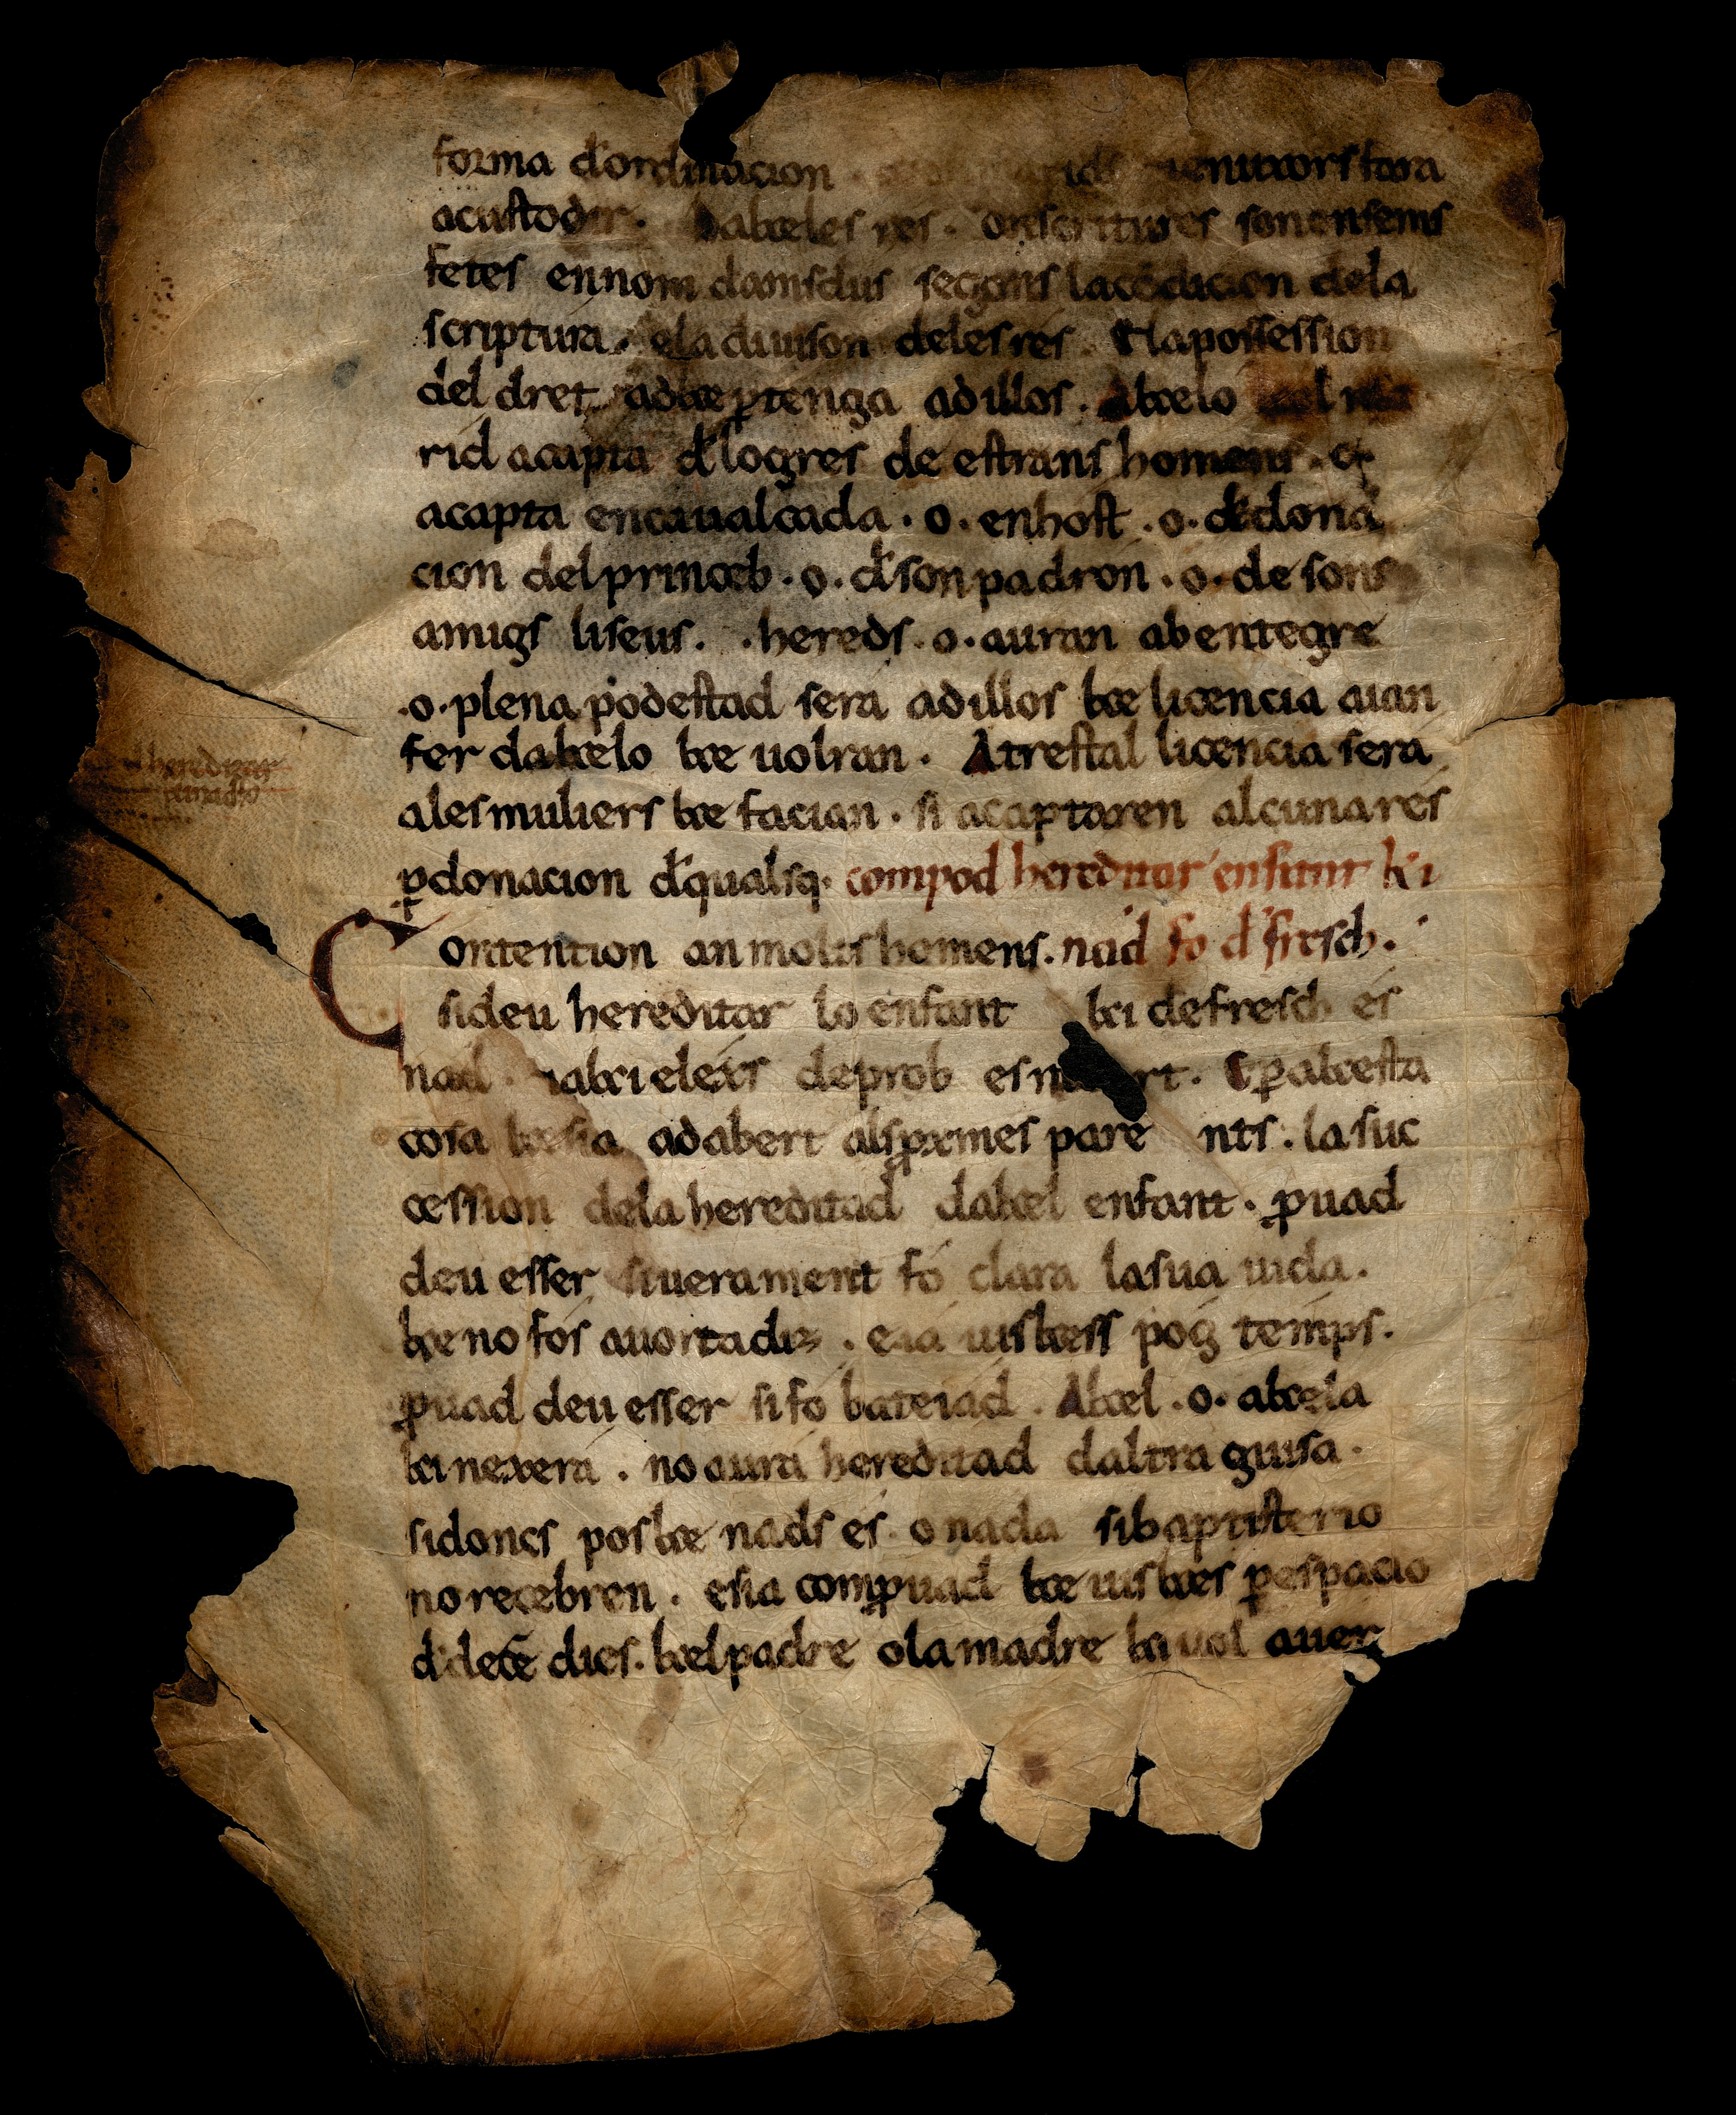 forma d'ordinacion
acustodir. Dakeles res. ores scritures son ensems
fetes ennom damsdus segons lacõdicion dela
scriptura. ela diuison delesres. Elapossession
del dret adke ꝑtenga adillos. Akelo kel ma
rid acapta d'logres de estrans homens. o.
acapta encaualcada. o. enhost. o. de dona
cion delprinceb. o. d'son padron. o. de sons
amigs liseus. hereds. o. auran abentegre
.o. plena podestad sera adillos ke licencia aian
fer dakelo ke uolran. Atrestal licencia sera
ales muliers ke facian. si acaptaren alcuna res
ꝑ donacion d'qualsq. compod hereditar enfant ki
Contention an molts homens. nad fo d'fresch.
sideu hereditar lo enfant ki de fresch es
nad. akiel exs deprob es mort. E ꝑ akesta
cosa kesia adabert als ꝓxmes pare nts. la suc
cession dela hereditad dakel enfant. ꝓuad
deu esser siuerament fó clara lasua uida.
ke no fos auortadiz. eiá uiskess póg temps.
ꝓuad deu esser si fo bateiad. Akel .o. akela
kinexera. no aura hereditad daltra guisa.
sidoncs poske nads es. o nada sibaptisterio
no recebren. esia comꝓuad ke uiskes ꝑ espacio
d'dece dies. kelpadre olamadre ki uol auer